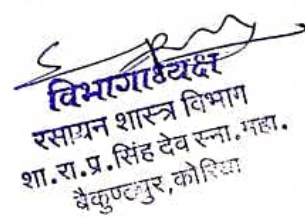 विभागाध्यक्ष
रसायन शास्त्र विभाग
शा.रा.प्र.सिंह देव स्ना.महा.
बैकुण्ठपुर,कोरिया